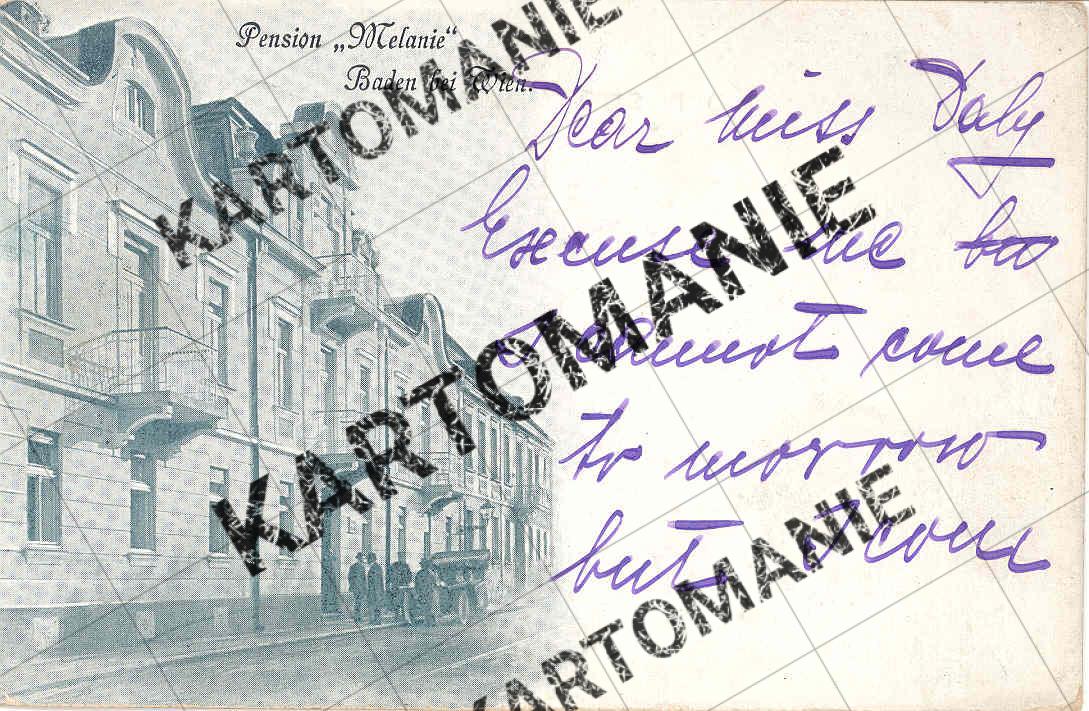 Pension „Melanie“
Baden bei Wien.
Dear miss Daly
Excuse me
I cannot come
to morrow
but I come
KARTOMANIE
KARTOMANIE
KARTOMANIE